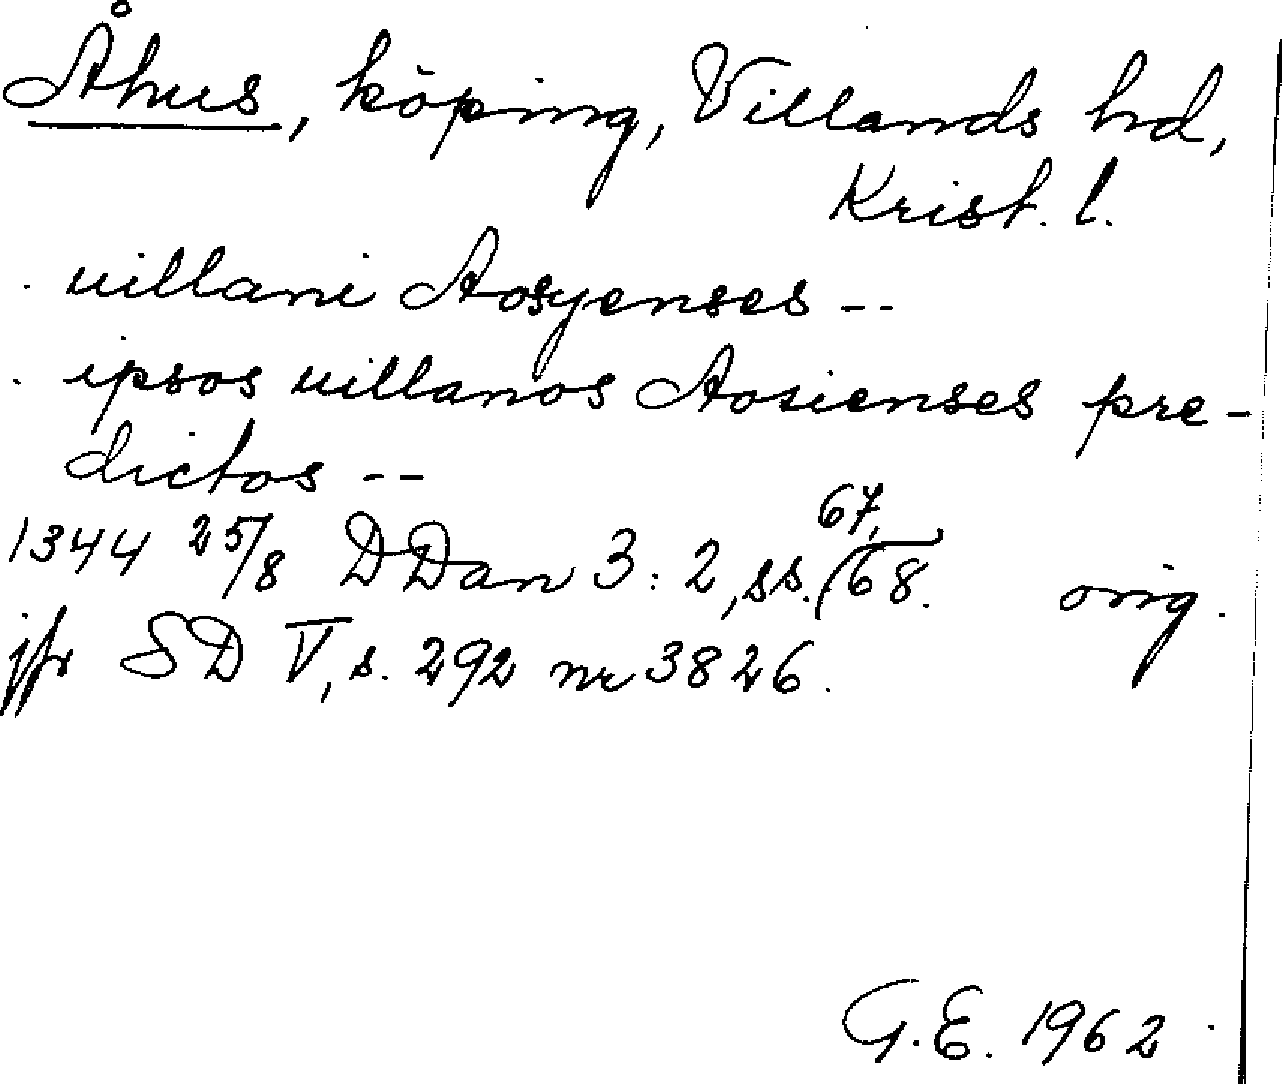 Åhus, köping, Villands hd,
Krist. l.
villani Aosyenses --
ipsos villanos Aosienses pre-
dictos --
1344 25/8 DDan 3:2, ss. 67, 68. orig.
jfr SD V, s. 292 nr 3826.
G.E. 1962